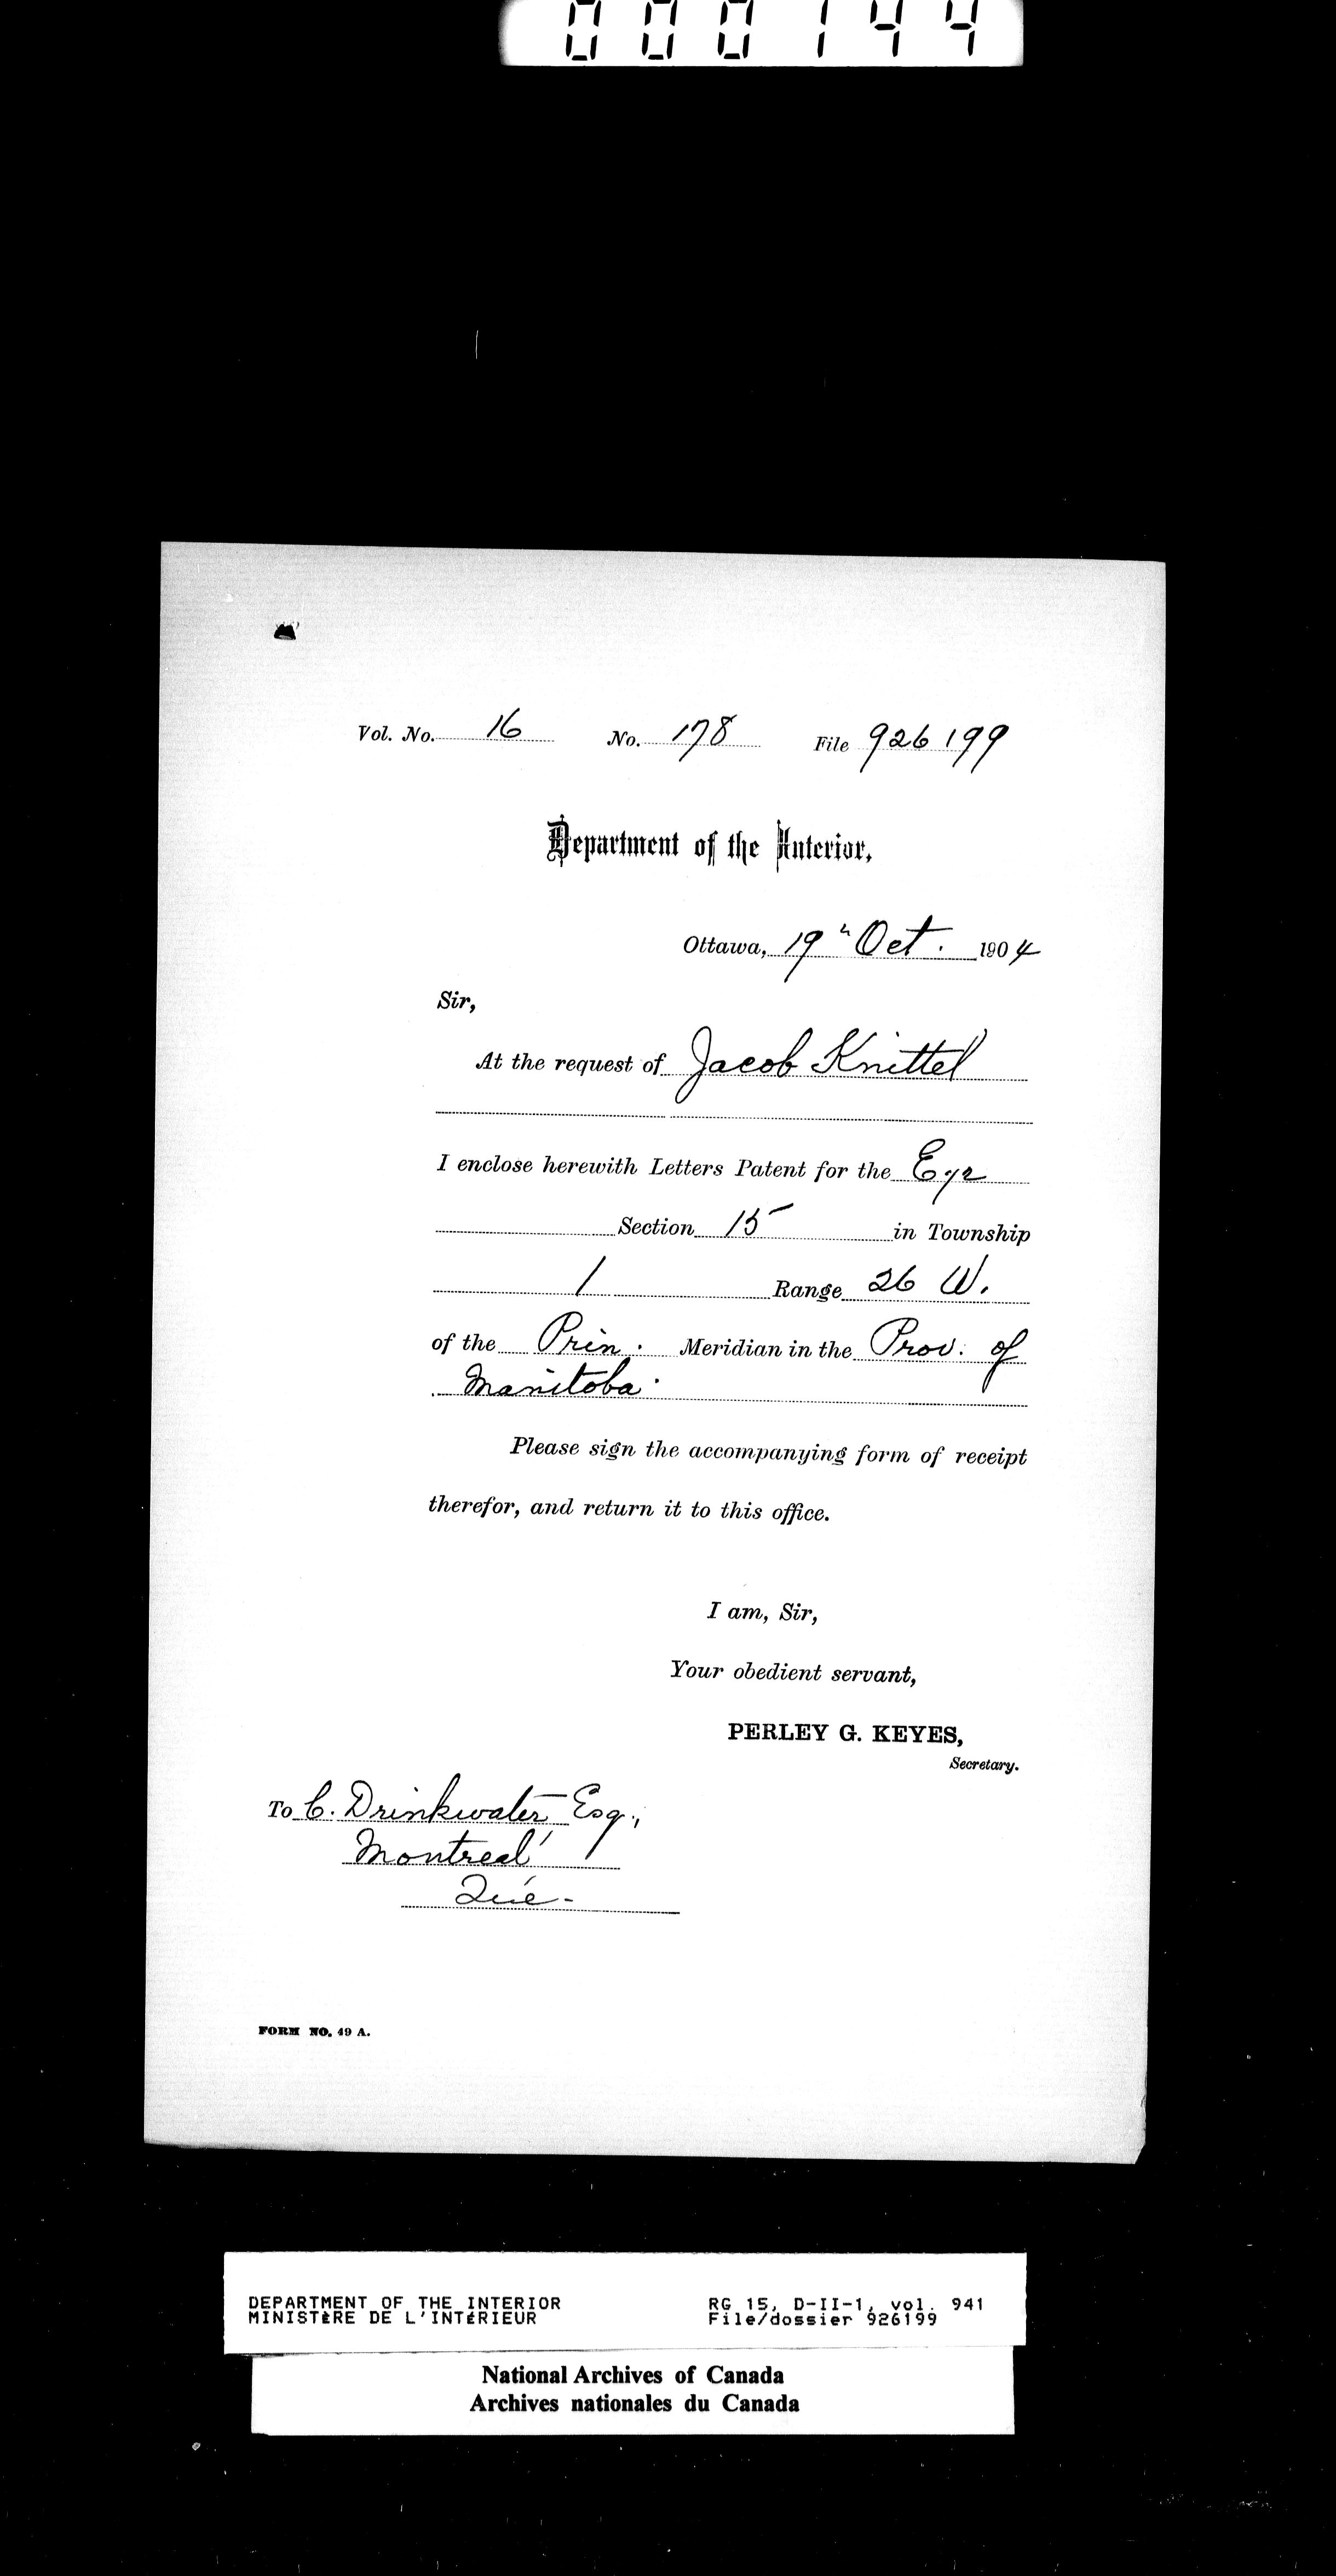 000144
Vol. No. 16 No. 178 File 926199
Department of the Interior,
Ottawa, 19th Oct. 1904
Sir,
At the request of Jacob Knittel
I enclose herewith Letters Patent for the E½
Section 15 in Township
1 Range 26 W.
of the Prin. Meridian in the Prov. of
Manitoba.
Please sign the accompanying form of receipt
therefor, and return it to this office.
I am, Sir,
Your obedient servant,
PERLEY G. KEYES,
Secretary.
To C. Drinkwater Esq.,
Montreal
Que-
FORM NO. 49 A.
DEPARTMENT OF THE INTERIOR RG 15, D-II-1, vol. 941
MINISTÈRE DE L'INTÉRIEUR File/dossier 926199
National Archives of Canada
Archives nationales du Canada